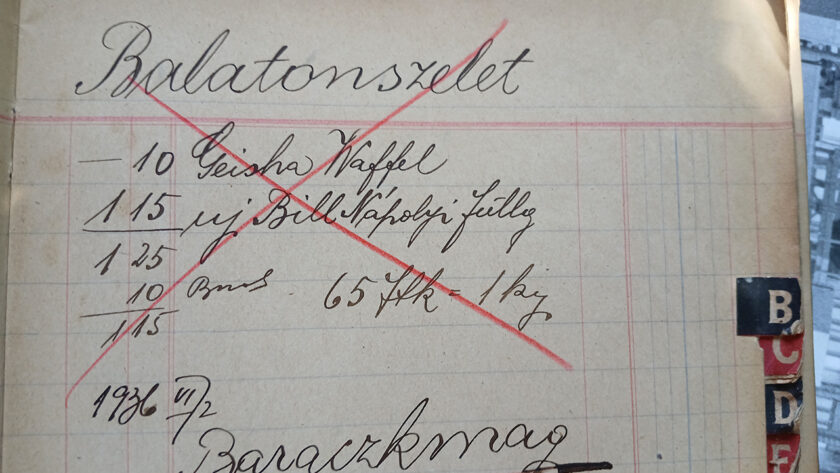 Balatonszelet
— 10 Geisha Waffel
1 15 uj Bill Nápolyi
1 25
10
1 15
65 = 1 kg
1936 VI/2
Baraczkmag
B
C
D
E